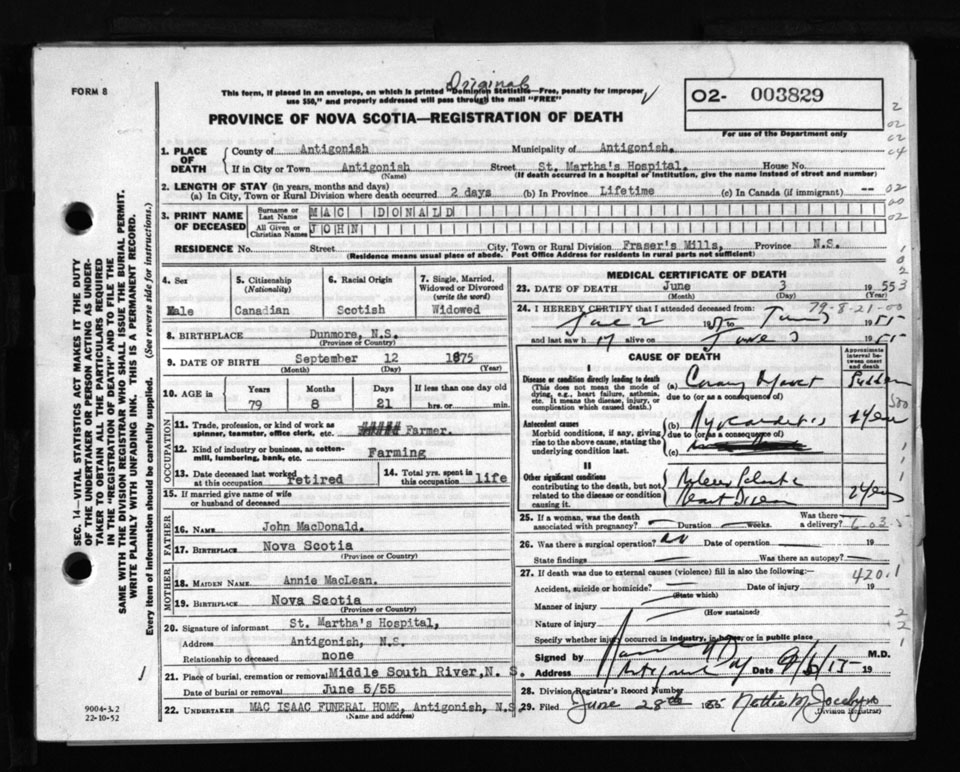 Original
FORM 8
This form, if placed in an envelope, on which is printed "Dominion Statistics—Free, penalty for improper
use $50," and properly addressed will pass through the mail "FREE"
O2- 003829
For use of the Department only
PROVINCE OF NOVA SCOTIA—REGISTRATION OF DEATH
1. PLACE OF DEATH
County of Antigonish Municipality of Antigonish.
If in City or Town Antigonish Street St. Martha's Hospital. House No.
(Name) (If death occurred in a hospital or institution, give the name instead of street and number)
2. LENGTH OF STAY (in years, months and days)
(a) In City, Town or Rural Division where death occurred 2 days (b) In Province Lifetime (c) In Canada (if immigrant) --
3. PRINT NAME OF DECEASED
Surname or Last Name MAC DONALD
All Given or Christian Names JOHN
RESIDENCE No. Street City, Town or Rural Division Fraser's Mills, Province N.S.
(Residence means usual place of abode. Post Office Address for residents in rural parts not sufficient)
4. Sex
Male
5. Citizenship
(Nationality)
Canadian
6. Racial Origin
Scotish
7. Single, Married, Widowed or Divorced
(write the word)
Widowed
8. BIRTHPLACE Dunmore, N.S.
(Province or Country)
9. DATE OF BIRTH September 12 1875
(Month) (Day) (Year)
10. AGE in
Years Months Days If less than one day old
79 8 21 hrs. or min.
OCCUPATION
11. Trade, profession, or kind of work as
spinner, teamster, office clerk, etc. Farmer.
12. Kind of industry or business, as cotten-
mill, lumbering, bank, etc. Farming
13. Date deceased last worked
at this occupation retired
14. Total yrs. spent in
this occupation life
15. If married give name of wife
or husband of deceased
FATHER
16. NAME John MacDonald.
17. BIRTHPLACE Nova Scotia
(Province or Country)
MOTHER
18. MAIDEN NAME Annie MacLean.
19. BIRTHPLACE Nova Scotia
(Province or Country)
20. Signature of informant St. Martha's Hospital,
Address Antigonish, N.S.
Relationship to deceased none
21. Place of burial, cremation or removal Middle South River, N. S.
Date of burial or removal June 5/55
22. UNDERTAKER MAC ISAAC FUNERAL HOME, Antigonish, N.S
(Name and address)
MEDICAL CERTIFICATE OF DEATH
23. DATE OF DEATH June 3 1955
(Month) (Day) (Year)
79-8-21-00
24. I HEREBY CERTIFY that I attended deceased from:
June 2 19 to June 3 1955
and last saw h alive on June 3 1955
CAUSE OF DEATH
Approximate interval between onset and death
I
Disease or condition directly leading to death
(This does not mean the mode of
dying, e.g., heart failure, asthenia,
etc. It means the disease, injury, or
complication which caused death.)
(a) Sudden
due to (or as a consequence of)
Antecedent causes
Morbid conditions, if any, giving
rise to the above cause, stating the
underlying condition last.
(b) Myocarditis
due to (or as a consequence of)
(c)
II
Other significant conditions
contributing to the death, but not
related to the disease or condition
causing it.
Heart Disease 2 years
25. If a woman, was the death
associated with pregnancy? Duration weeks. Was there a delivery?
26. Was there a surgical operation? no Date of operation 19
State findings Was there an autopsy?
27. If death was due to external causes (violence) fill in also the following:—
420.1
Accident, suicide or homicide? Date of injury 19
(State which)
Manner of injury
(How sustained)
Nature of injury
Specify whether injury occurred in industry, in home, or in public place
Signed by M.D.
Address Antigonish Date 19
28. Division Registrar's Record Number
29. Filed June 28th 1955 Nettie M. Jocelyn
(Division Registrar)
SEC. 14—VITAL STATISTICS ACT MAKES IT THE DUTY
OF THE UNDERTAKER OR PERSON ACTING AS UNDER-
TAKER TO OBTAIN ALL THE PARTICULARS REQUIRED
IN THE "REGISTRATION OF DEATH" AND TO FILE THE
SAME WITH THE DIVISION REGISTRAR WHO SHALL ISSUE THE BURIAL PERMIT.
WRITE PLAINLY WITH UNFADING INK. THIS IS A PERMANENT RECORD.
Every item of information should be carefully supplied. (See reverse side for instructions.)
9004-3.2
22-10-52